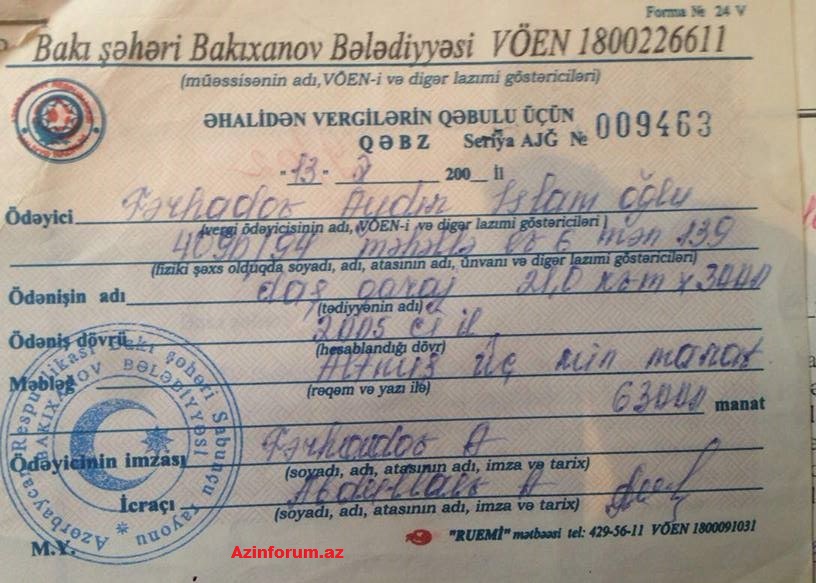 Forma № 24 V
Bakı şəhəri Bakıxanov Bələdiyyəsi VÖEN 1800226611
(müəssisənin adı, VÖEN-i və digər lazımi göstəriciləri)
ƏHALİDƏN VERGİLƏRİN QƏBULU ÜÇÜN
QƏBZ Seriya AJĞ № 009463
"13" 2 200__ İl
Ödəyici Fərhadov Aydın İslam oğlu
(vergi ödəyicisinin adı, VÖEN-i və digər lazımi göstəriciləri)
4090/94 məhəllə ev 6 mən 139
(fiziki şəxs olduqda soyadı, adı, atasının adı, ünvanı və digər lazımi göstəriciləri)
Ödənişin adı daş qaraj 21,0 kv.m x 3000
(tədiyyənin adı)
Ödəniş dövrü 2005 ci il
(hesablandığı dövr)
Məbləğ Altmış üç min manat
(rəqəm və yazı ilə)
63000 manat
Ödəyicinin imzası Fərhadov A
(soyadı, adı, atasının adı, imza və tarix)
İcraçı A
(soyadı, adı, atasının adı, imza və tarix)
"RUEMİ" mətbəəsi tel: 429-56-11 VÖEN 1800091031
M.Y.
Azərbaycan Respublikası Bakı şəhəri Sabunçu rayonu
BAKIXANOV BƏLƏDİYYƏSİ
Azinforum.az